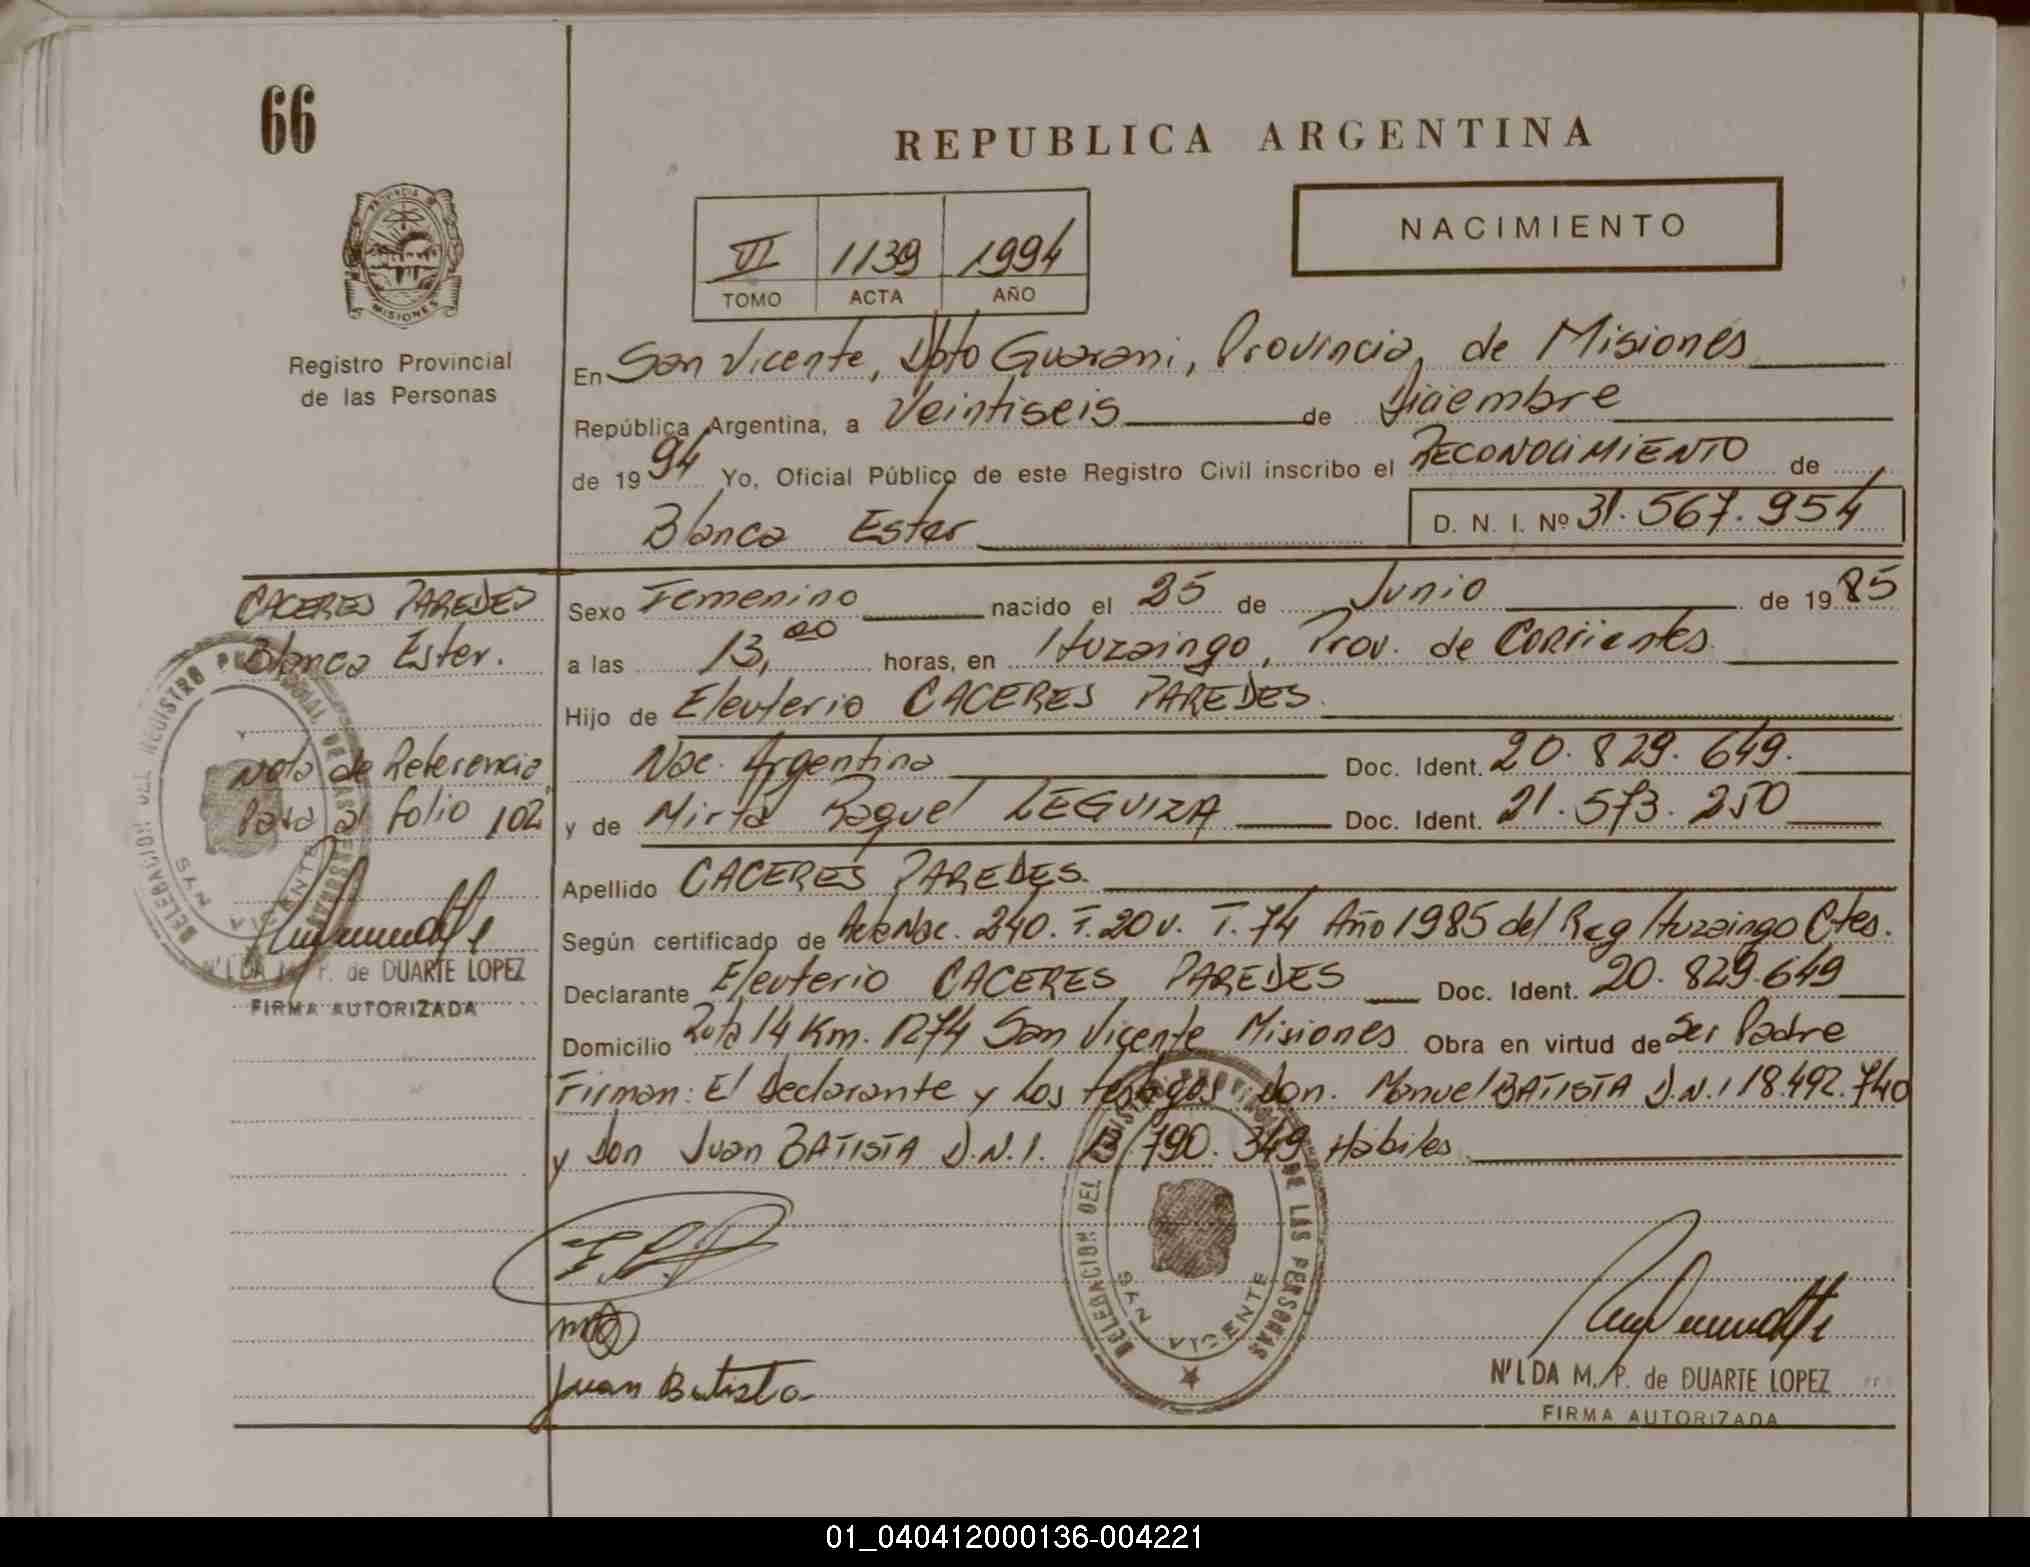 66
REPUBLICA ARGENTINA
NACIMIENTO
PROVINCIA D
MISIONES
VI 1139 1994
TOMO ACTA AÑO
Registro Provincial
de las Personas
En San Vicente, Dpto Guarani, Provincia, de Misiones
República Argentina, a Veintiseis de Diciembre
de 1994 Yo, Oficial Público de este Registro Civil inscribo el RECONOCIMIENTO de
Blanca Ester D. N. I. Nº 31.567.954
CACERES PAREDES
Blanca Ester.
Sexo Femenino nacido el 25 de Junio de 1985
a las 13,00 horas, en Ituzaingo, Prov. de Corrientes.
Hijo de Eleuterio CACERES PAREDES.
Nota de Referencia
Pasa al folio 102
Nac. Argentina Doc. Ident. 20.829.649.
y de Mirta Raquel LEGUIZA Doc. Ident. 21.573.250
Apellido CACERES PAREDES.
Según certificado de Acta Nac. 240. F. 20 v. T. 74 Año 1985 del Reg Ituzaingo Ctes.
Declarante Eleuterio CACERES PAREDES Doc. Ident. 20.829.649
Domicilio Ruta 14 Km. 1274 San Vicente Misiones Obra en virtud de Ser Padre
Firman: El Declarante y Los testigos Don. Manuel BATISTA D.N.I 18.492.740
y Don Juan BATISTA D.N.I. 13.790.349 Habiles
DELEGACION DEL REGISTRO PROVINCIAL DE LAS PERSONAS
SAN VICENTE
N'LDA M. P. de DUARTE LOPEZ
FIRMA AUTORIZADA
DELEGACION DEL REGISTRO PROVINCIAL DE LAS PERSONAS
SAN VICENTE
Juan Batista
N'LDA M. P. de DUARTE LOPEZ
FIRMA AUTORIZADA
01_040412000136-004221